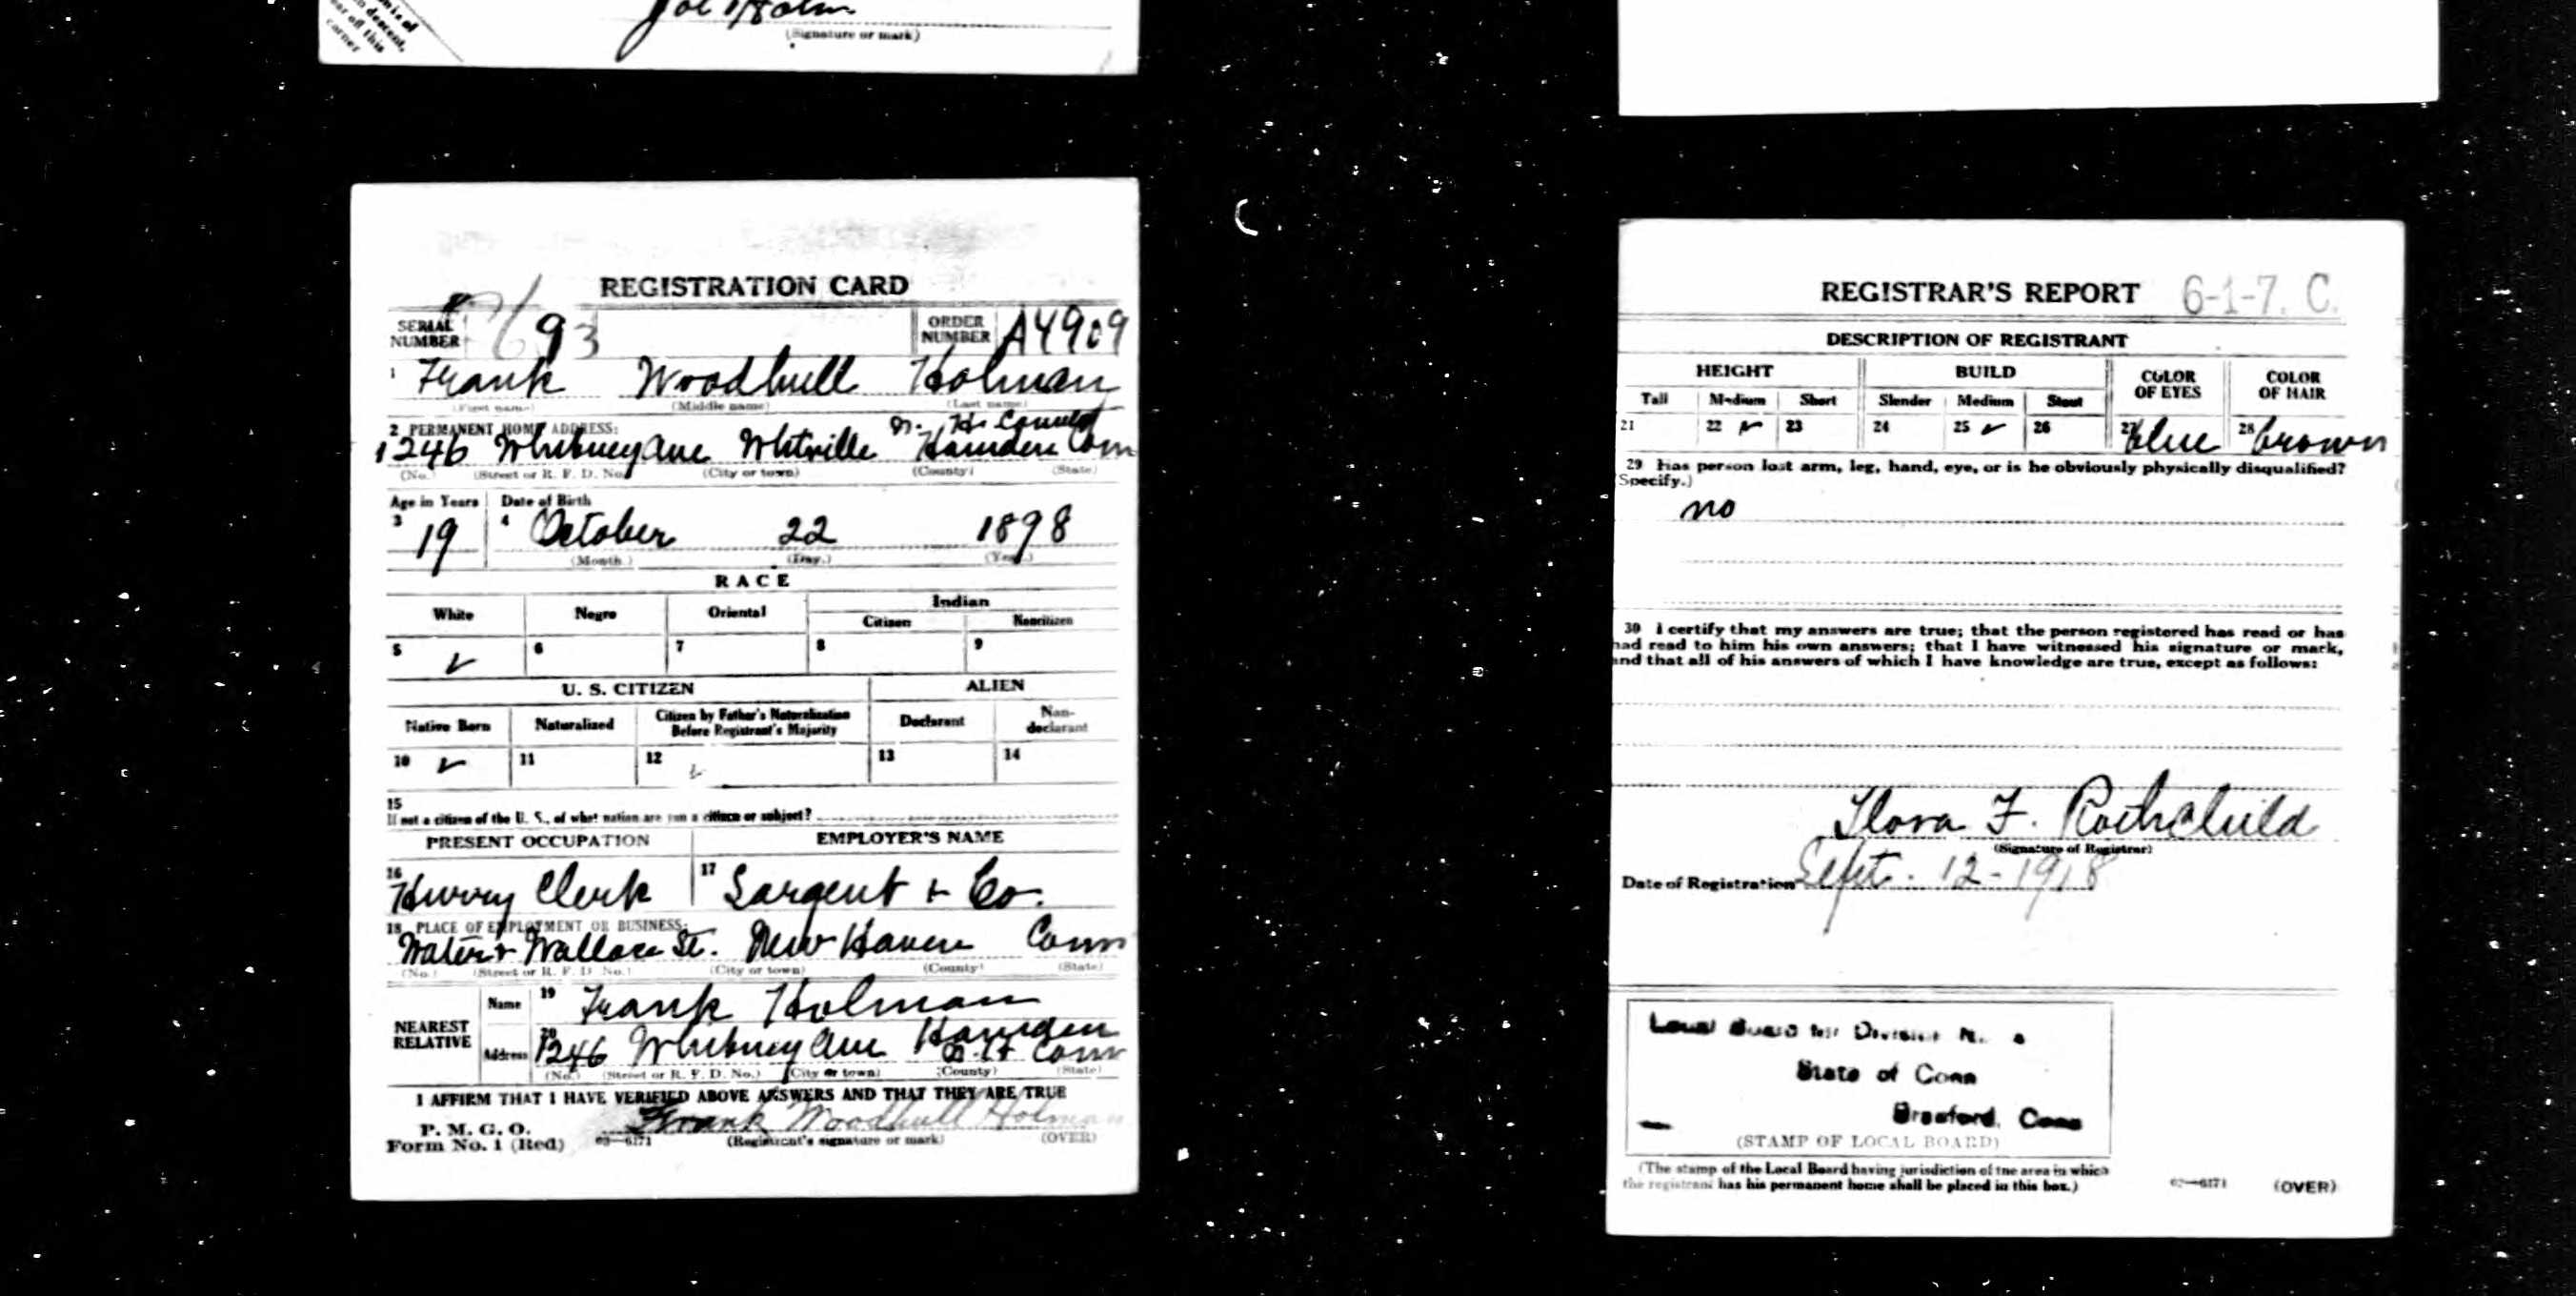 (Signature or mark)
corner
REGISTRATION CARD
SERIAL NUMBER 693 ORDER NUMBER A4909
1 Frank Woodhull Holman
(First name) (Middle name) (Last name)
2 PERMANENT HOME ADDRESS: N. H. County
1246 Whitney Ave Whitville Hamden Conn
(No.) (Street or R. F. D. No.) (City or town) (County) (State)
Age in Years Date of Birth
3 19 4 October 22 1898
(Month.) (Day.) (Year.)
RACE
White Negro Oriental Indian
Citizen Noncitizen
5 ✓ 6 7 8 9
U. S. CITIZEN ALIEN
Native Born Naturalized Citizen by Father's Naturalization Before Registrant's Majority Declarant Non-declarant
10 ✓ 11 12 13 14
15
If not a citizen of the U. S., of what nation are you a citizen or subject?
PRESENT OCCUPATION EMPLOYER'S NAME
16 Clerk 17 Sargent & Co.
18 PLACE OF EMPLOYMENT OR BUSINESS:
Water & Wallace St. New Haven Conn
(No.) (Street or R. F. D. No.) (City or town) (County) (State)
NEAREST RELATIVE Name 19 Frank Holman
Address 20 1246 Whitney Ave Hamden N. H. Conn
(No.) (Street or R. F. D. No.) (City or town) (County) (State)
I AFFIRM THAT I HAVE VERIFIED ABOVE ANSWERS AND THAT THEY ARE TRUE
P. M. G. O.
Form No. 1 (Red) 03—6171 Frank Woodhull Holman
(Registrant's signature or mark) (OVER)
REGISTRAR'S REPORT 6-1-7. C.
DESCRIPTION OF REGISTRANT
HEIGHT BUILD COLOR OF EYES COLOR OF HAIR
Tall Medium Short Slender Medium Stout
21 22 ✓ 23 24 25 ✓ 26 27 blue 28 brown
29 Has person lost arm, leg, hand, eye, or is he obviously physically disqualified?
Specify.)
no
30 I certify that my answers are true; that the person registered has read or has
had read to him his own answers; that I have witnessed his signature or mark,
and that all of his answers of which I have knowledge are true, except as follows:
Flora F. Rothchild
(Signature of Registrar)
Date of Registration Sept. 12-1918
Local Board for Division No.
State of Conn
Branford, Conn
(STAMP OF LOCAL BOARD)
(The stamp of the Local Board having jurisdiction of the area in which
the registrant has his permanent home shall be placed in this box.)
03—6171 (OVER)